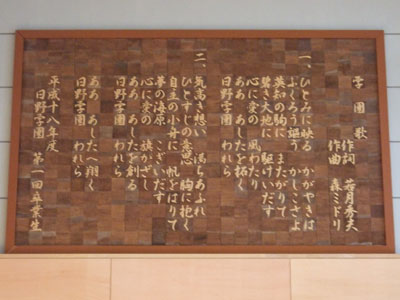 学園歌
作詞 若月秀夫
作曲 森ミドリ
一、ひとみに映る かがやきは
ふしろう謳う かしこさよ
英知の駒に またがりて
碧き大地に 駆けいだす
心に愛の 風わたり
ああ あしたを拓く
日野学園 われら
二、気高き想い 満ちあふれ
ひとすじの意思 胸に抱く
自主の小舟に 帆をはりて
夢の海原 こぎいだす
心に愛の 旗かざし
ああ あしたを創る
日野学園 われら
ああ あしたへ翔く
日野学園 われら
平成十八年度
日野学園 第一回卒業生